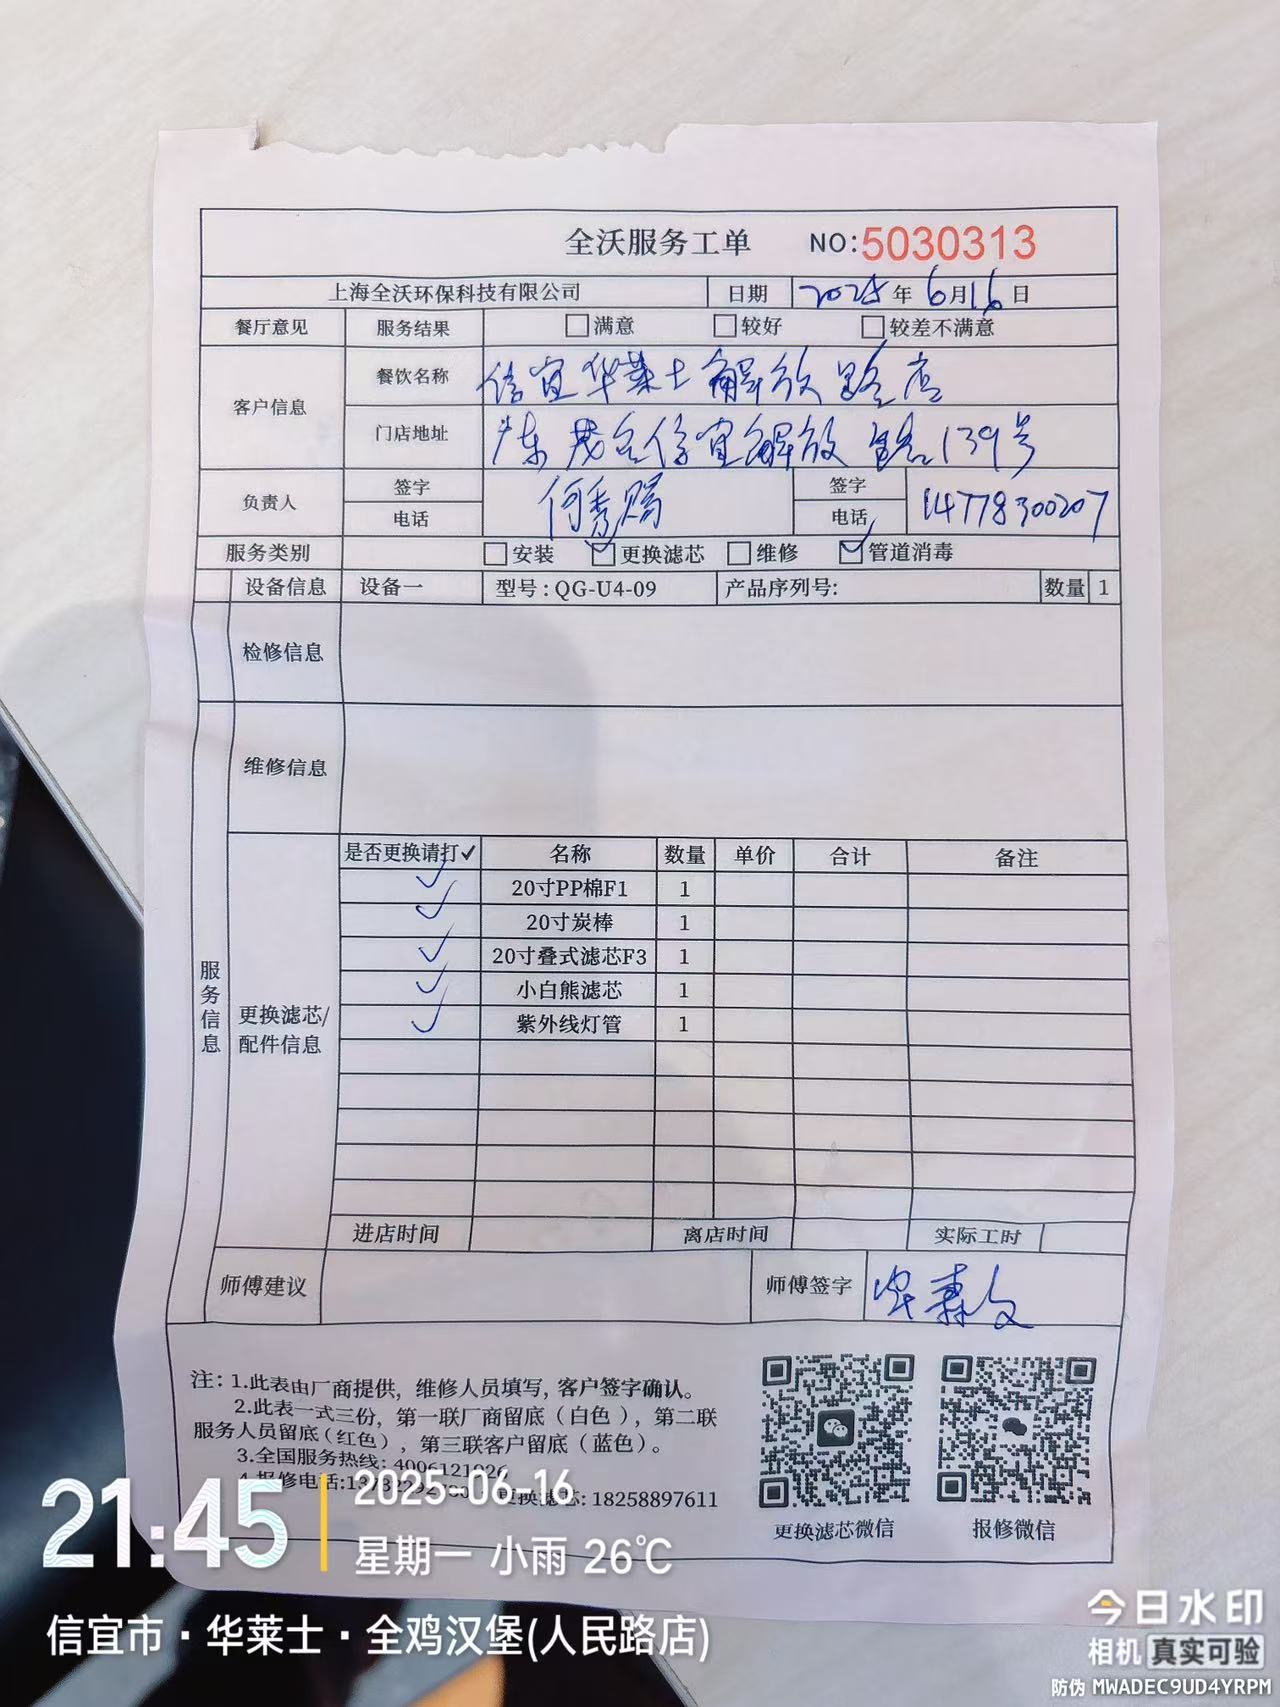 全沃服务工单 NO:5030313
上海全沃环保科技有限公司 日期 2025年6月16日
餐厅意见 服务结果 □满意 □较好 □较差不满意
客户信息 餐饮名称 信宜华莱士解放路店
门店地址 广东茂名信宜解放路139号
负责人 签字 何秀赐 签字
电话 电话 14778300207
服务类别 □安装 ☑更换滤芯 □维修 ☑管道消毒
设备信息 设备一 型号:QG-U4-09 产品序列号: 数量 1
检修信息
维修信息
服务信息
更换滤芯/
配件信息
是否更换请打✓ 名称 数量 单价 合计 备注
✓ 20寸PP棉F1 1
✓ 20寸炭棒 1
✓ 20寸叠式滤芯F3 1
✓ 小白熊滤芯 1
✓ 紫外线灯管 1
进店时间 离店时间 实际工时
师傅建议 师傅签字
注:1.此表由厂商提供,维修人员填写,客户签字确认。
2.此表一式三份,第一联厂商留底(白色),第二联
服务人员留底(红色),第三联客户留底(蓝色)。
3.全国服务热线:4006121026
4.报修电话: 更换滤芯:18258897611
更换滤芯微信 报修微信
21:45 2025-06-16
星期一 小雨 26℃
信宜市·华莱士·全鸡汉堡(人民路店)
今日水印
相机 真实可验
防伪 MWADEC9UD4YRPM